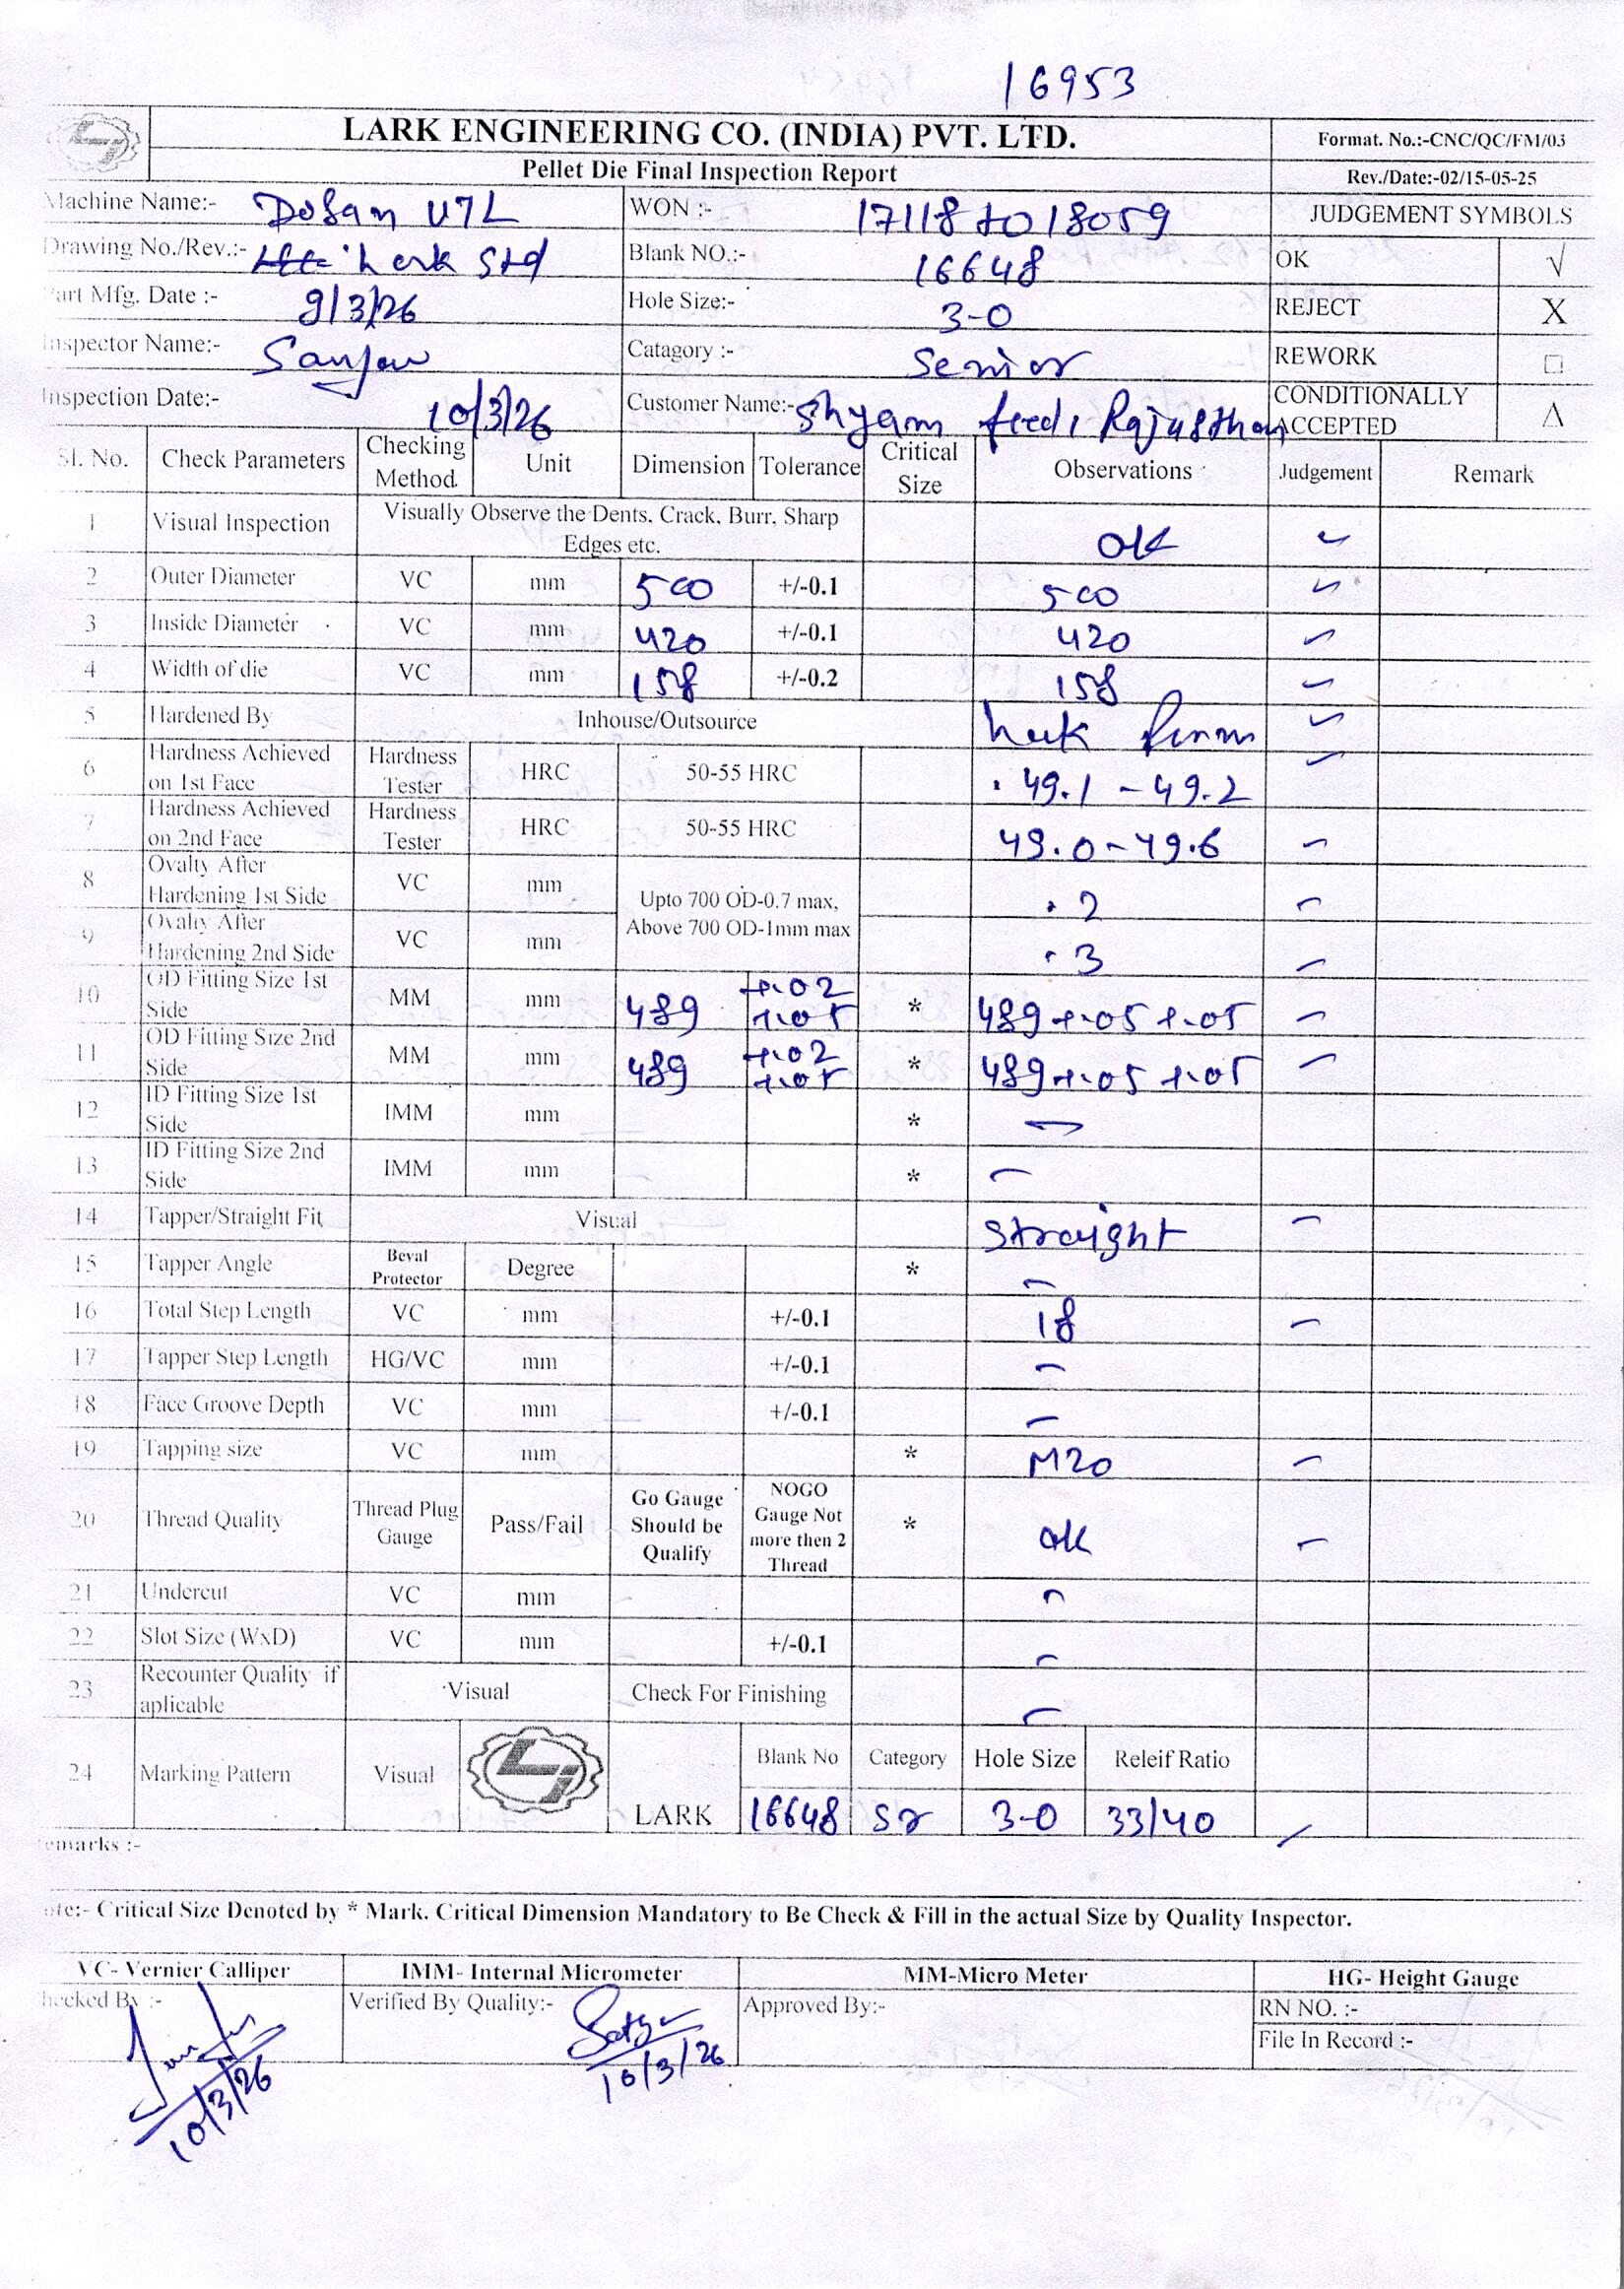 16953
LARK ENGINEERING CO. (INDIA) PVT. LTD.
Format. No.:-CNC/QC/FM/03
Pellet Die Final Inspection Report
Rev./Date:-02/15-05-25
Machine Name:- Dofam U7L WON :- 17118 to 18059 JUDGEMENT SYMBOLS
Drawing No./Rev.:- Lark Std Blank NO.:- 16648 OK √
Part Mfg. Date :- 9/3/26 Hole Size:- 3-0 REJECT X
Inspector Name:- Sanjeev Catagory :- Senior REWORK □
Inspection Date:- 10/3/26 Customer Name:- Shyam feed, Rajasthan CONDITIONALLY ACCEPTED Δ
Sl. No. Check Parameters Checking Method Unit Dimension Tolerance Critical Size Observations Judgement Remark
1 Visual Inspection Visually Observe the Dents, Crack, Burr, Sharp Edges etc. OK ✓
2 Outer Diameter VC mm 500 +/-0.1 500 ✓
3 Inside Diameter VC mm 420 +/-0.1 420 ✓
4 Width of die VC mm 158 +/-0.2 158 ✓
5 Hardened By Inhouse/Outsource ✓
6 Hardness Achieved on 1st Face Hardness Tester HRC 50-55 HRC 49.1 - 49.2 ✓
7 Hardness Achieved on 2nd Face Hardness Tester HRC 50-55 HRC 49.0 - 49.6 ✓
8 Ovalty After Hardening 1st Side VC mm Upto 700 OD-0.7 max, Above 700 OD-1mm max .2 ✓
9 Ovalty After Hardening 2nd Side VC mm .3 ✓
10 OD Fitting Size 1st Side MM mm 489 +.02 +.05 * 489 +.05 +.05 ✓
11 OD Fitting Size 2nd Side MM mm 489 +.02 +.05 * 489 +.05 +.05 ✓
12 ID Fitting Size 1st Side IMM mm * -
13 ID Fitting Size 2nd Side IMM mm * -
14 Tapper/Straight Fit Visual Straight ✓
15 Tapper Angle Beval Protector Degree * -
16 Total Step Length VC mm +/-0.1 18 ✓
17 Tapper Step Length HG/VC mm +/-0.1 -
18 Face Groove Depth VC mm +/-0.1 -
19 Tapping size VC mm * M20 ✓
20 Thread Quality Thread Plug Gauge Pass/Fail Go Gauge Should be Qualify NOGO Gauge Not more then 2 Thread * OK ✓
21 Undercut VC mm -
22 Slot Size (WxD) VC mm +/-0.1 -
23 Recounter Quality if aplicable Visual Check For Finishing -
24 Marking Pattern Visual LARK Blank No Category Hole Size Releif Ratio
16648 Sr 3-0 33/40 ✓
emarks :-
ote:- Critical Size Denoted by * Mark. Critical Dimension Mandatory to Be Check & Fill in the actual Size by Quality Inspector.
VC- Vernier Calliper IMM- Internal Micrometer MM-Micro Meter HG- Height Gauge
hecked By :- Verified By Quality:- Approved By:- RN NO. :-
File In Record :-
10/3/26 10/3/26